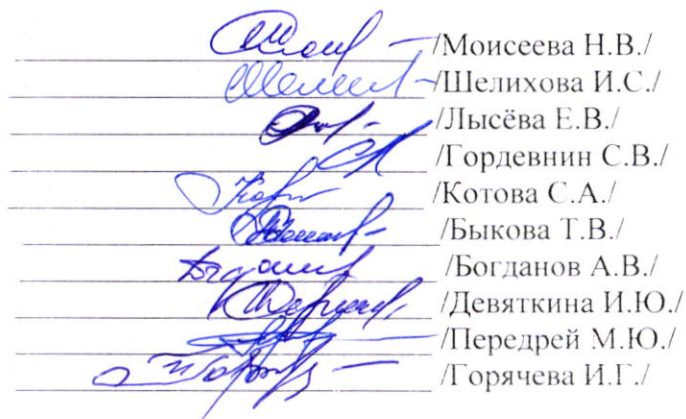 /Моисеева Н.В./
/Шелихова И.С./
/Лысёва Е.В./
/Гордевнин С.В./
/Котова С.А./
/Быкова Т.В./
/Богданов А.В./
/Девяткина И.Ю./
/Передрей М.Ю./
/Горячева И.Г./